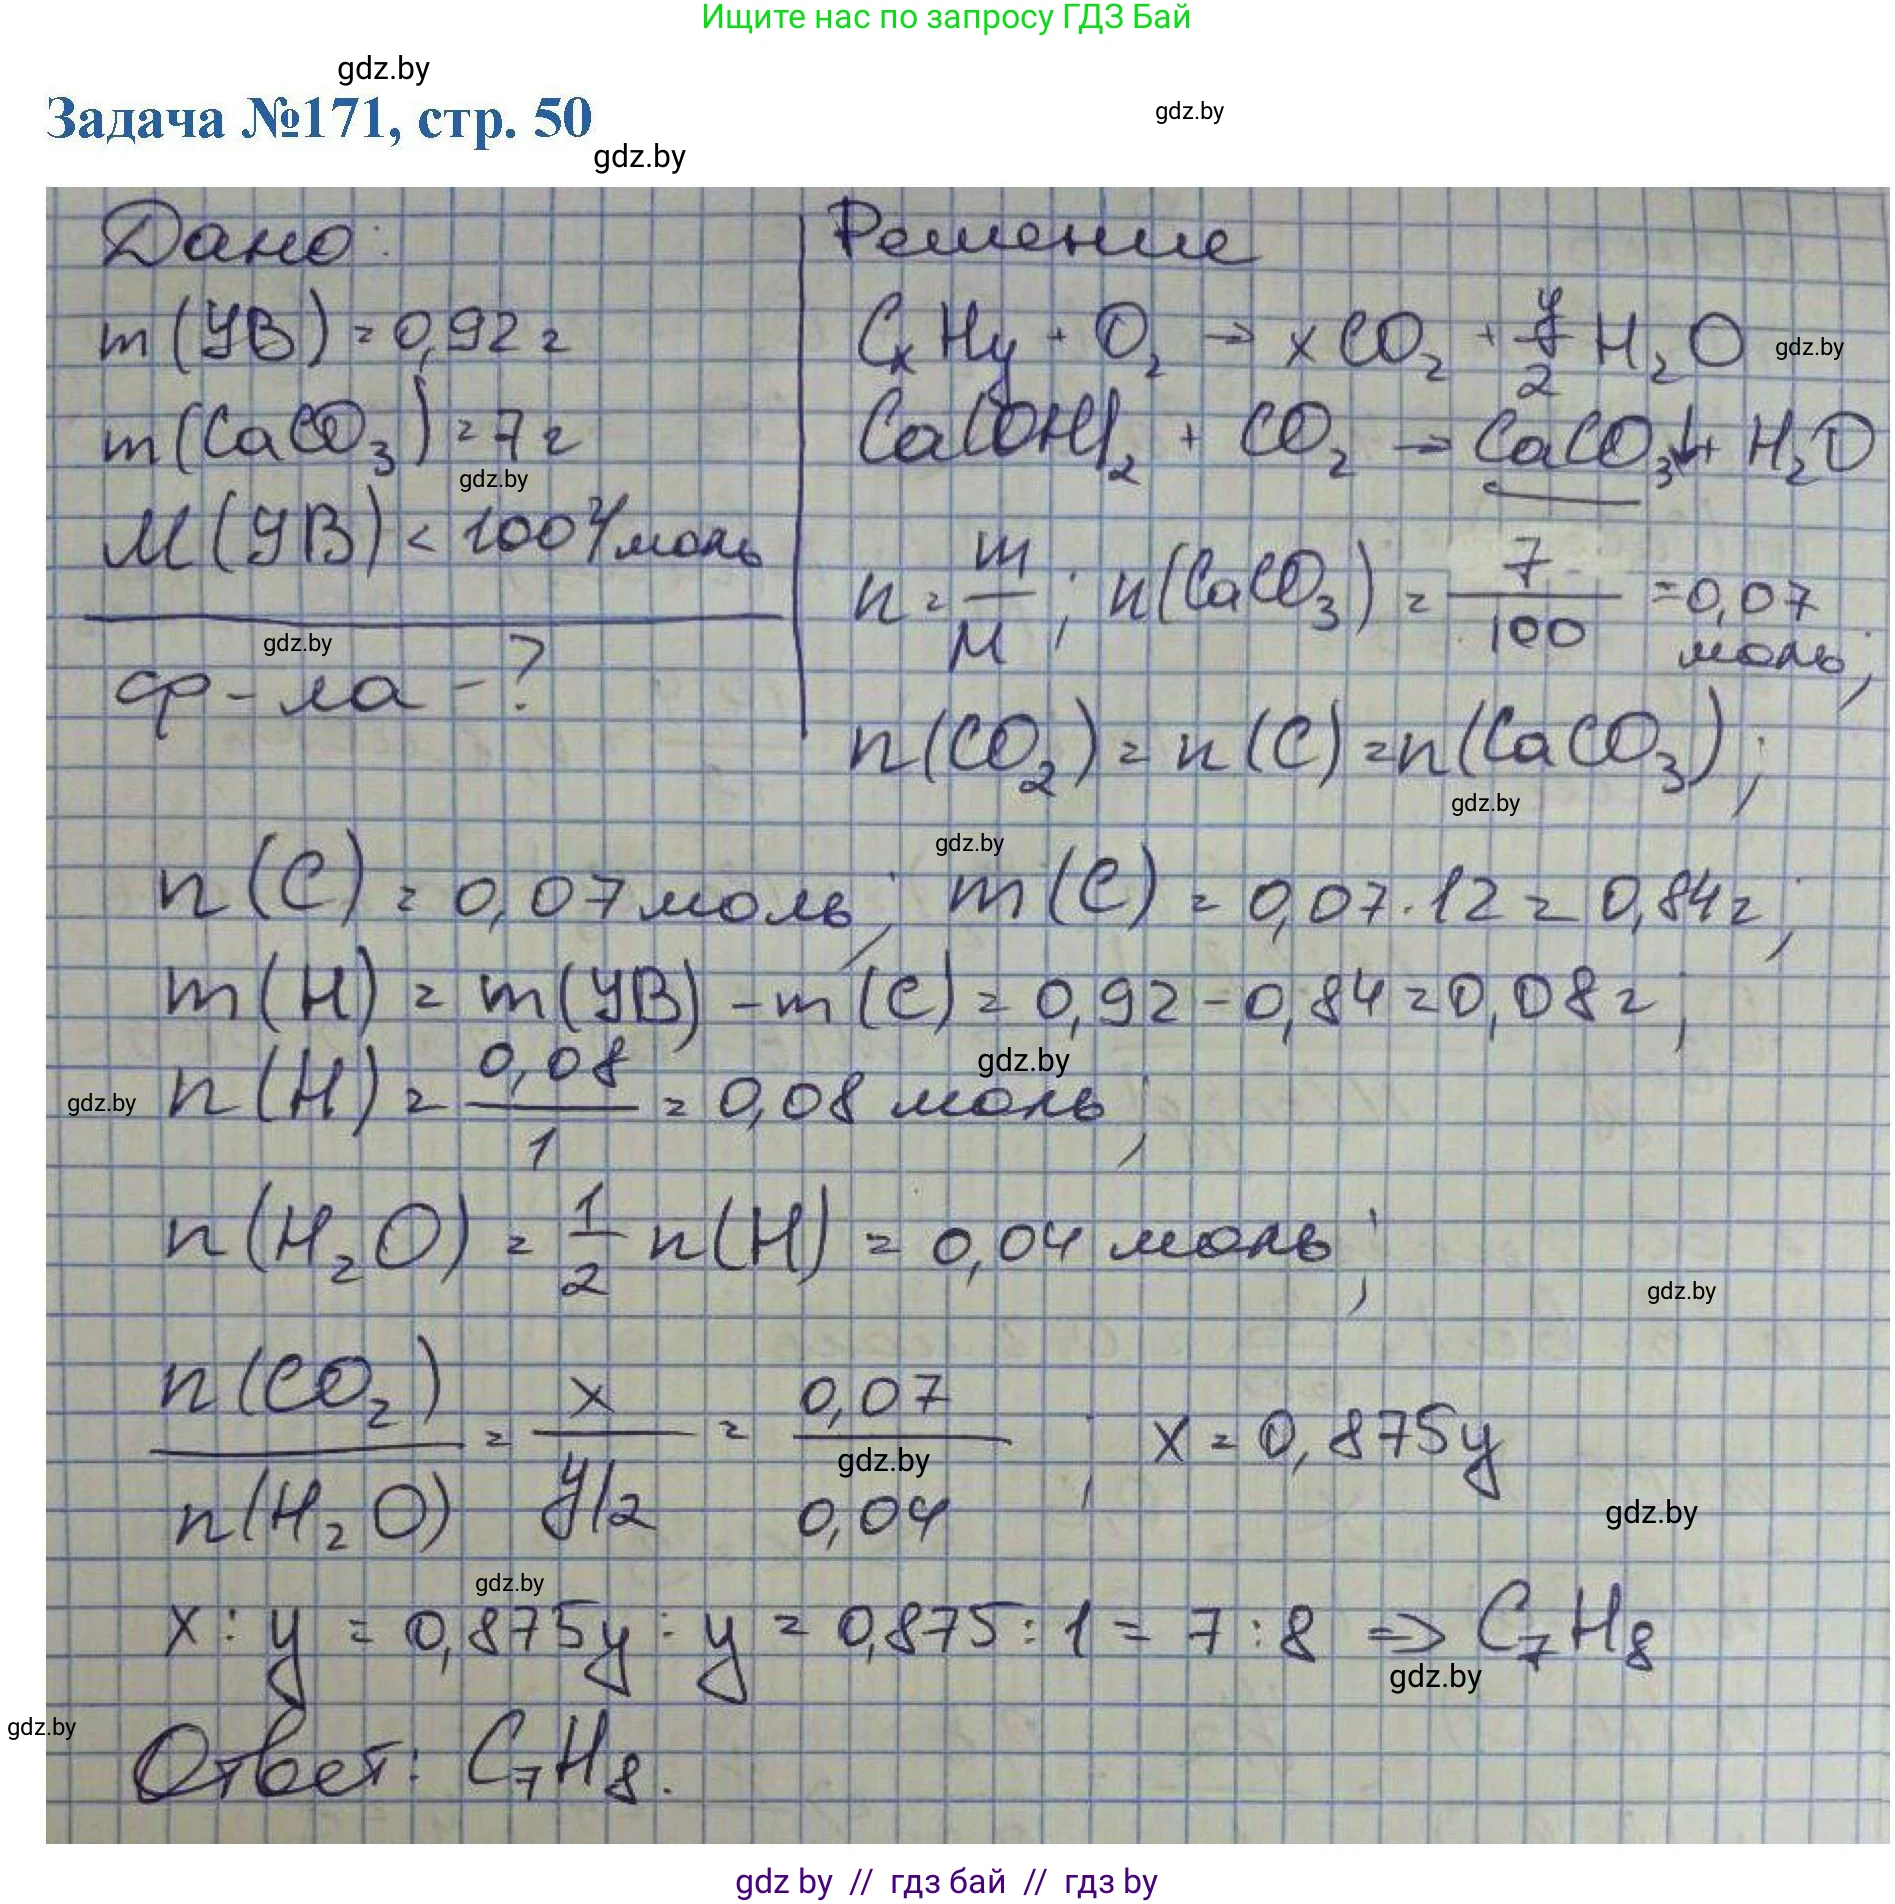 Ищите нас по запросу ГДЗ Бай
gdz.by
Задача №171, стр. 50
gdz.by
gdz.by
Дано:
m(УВ) = 0,92 г
m(CaCO₃) = 7 г
gdz.by
M(УВ) < 100 г/моль
gdz.by
ф-ла - ?
Решение
CₓHᵧ + O₂ → xCO₂ + y/2 H₂O
gdz.by
Ca(OH)₂ + CO₂ → CaCO₃↓ + H₂O
n = m/M ; n(CaCO₃) = 7/100 = 0,07 моль;
n(CO₂) = n(C) = n(CaCO₃);
gdz.by
gdz.by
n(C) = 0,07 моль; m(C) = 0,07 · 12 = 0,84 г;
m(H) = m(УВ) - m(C) = 0,92 - 0,84 = 0,08 г;
gdz.by
gdz.by
n(H) = 0,08/1 = 0,08 моль;
n(H₂O) = 1/2 n(H) = 0,04 моль;
gdz.by
n(CO₂)/n(H₂O) = x/y/2 = 0,07/0,04 ; x = 0,875y
gdz.by
gdz.by
gdz.by
x : y = 0,875y : y = 0,875 : 1 = 7 : 8 => C₇H₈
gdz.by
gdz.by
Ответ: C₇H₈.
gdz by // гдз бай // гдз by